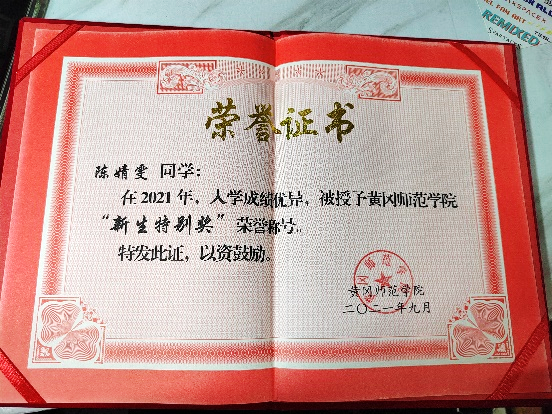 FOR ALL
REMIXED
荣誉证书
陈婧雯 同学：
在2021年，入学成绩优异，被授予黄冈师范学院
“新生特别奖”荣誉称号。
特发此证，以资鼓励。
黄冈师范学院
二〇二一年九月